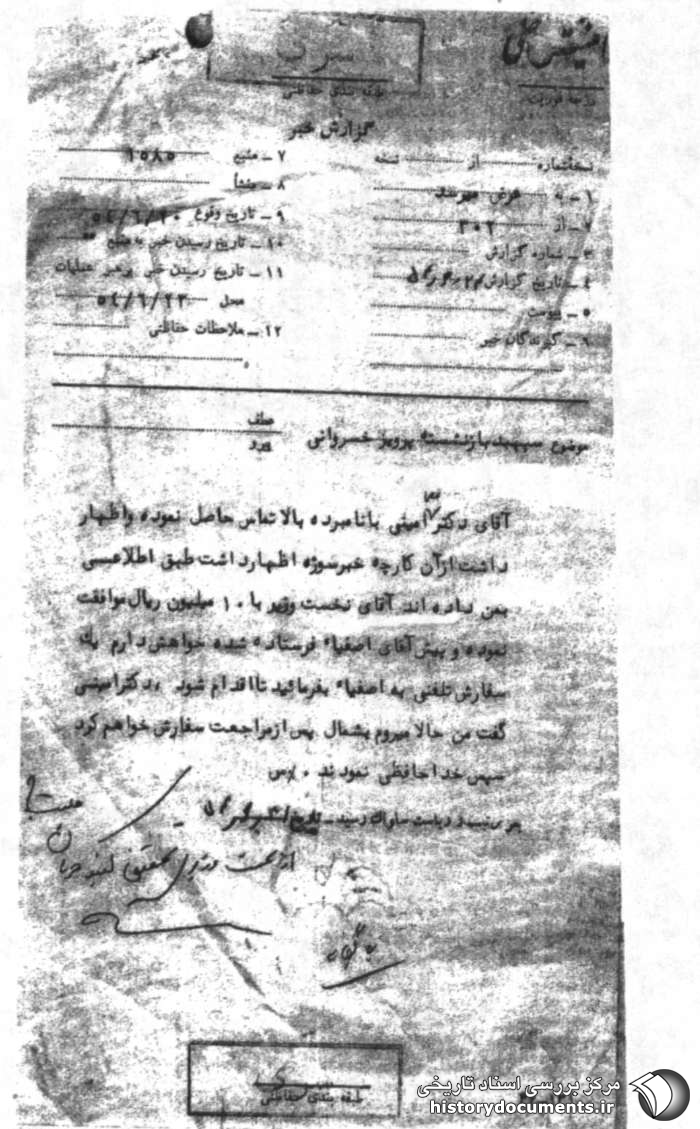 سری
طبقه بندی حفاظتی
درجه فوریت
گزارش خبر
نسخه شماره از نسخه
۱ـ به عرض میرسد
۲ـ از ۳۰۲
۳ـ شماره گزارش
٤ـ تاریخ گزارش
۵ـ پیوست
۶ـ گیرندگان خبر
۷ـ منبع ۱۵۸۵
۸ـ منشأ
۹ـ تاریخ وقوع ۵٤/٦/۲۰
۱۰ـ تاریخ رسیدن خبر به منبع
۱۱ـ تاریخ رسیدن خبر برهبر عملیات
محل ۵٤/٦/۲۳
۱۲ـ ملاحظات حفاظتی
موضوع سپهبد بازنشسته پرویز خسروانی
عطف
پیرو
آقای دکتر امینی با نامبرده بالا تماس حاصل نموده و اظهار
داشت از آن کار چه خبر سوژه اظهار داشت طبق اطلاعی
بمن داده اند آقای نخست وزیر با ۱۰ میلیون ریال موافقت
نموده و پیش آقای اصفیاء فرستاده شده خواهش دارم یک
سفارش تلفنی به اصفیاء بفرمائید تا اقدام شود ، دکتر امینی
گفت من حالا میروم بشمال پس از مراجعت سفارش خواهم کرد
سپس خداحافظی نمودند .
ریاست ساواک رسید ـ تاریخ
طبقه بندی حفاظتی
مرکز بررسی اسناد تاریخی
historydocuments.ir